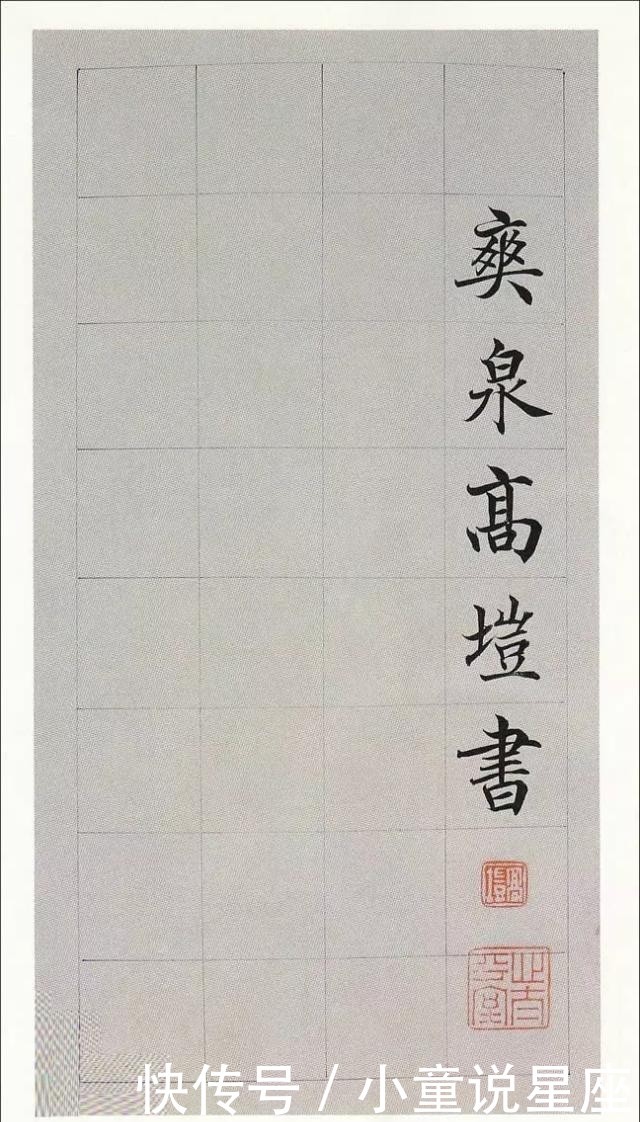 爽泉高塏書
快传号 / 小童说星座